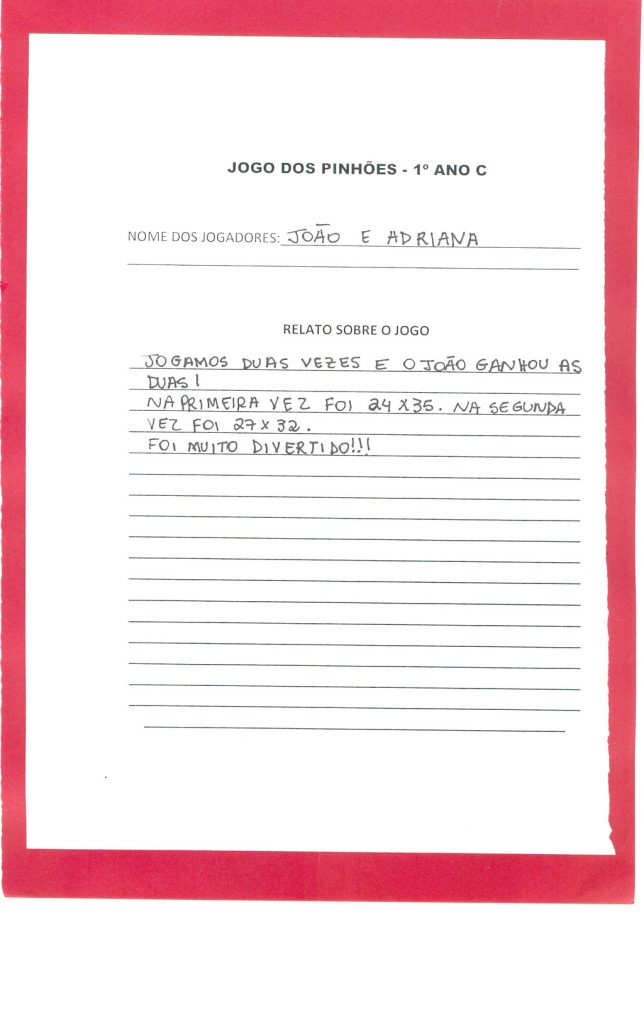 JOGO DOS PINHÕES - 1º ANO C
NOME DOS JOGADORES: JOÃO E ADRIANA
RELATO SOBRE O JOGO
JOGAMOS DUAS VEZES E O JOÃO GANHOU AS
DUAS!
NA PRIMEIRA VEZ FOI 24 X 35. NA SEGUNDA
VEZ FOI 27 X 32.
FOI MUITO DIVERTIDO!!!